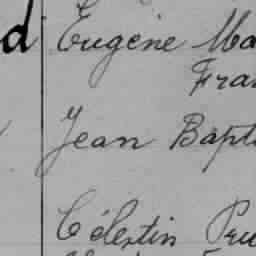 d Eugène Ma
Fra
Jean Bapt
Célestin